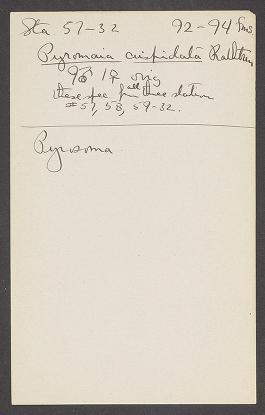 Sta. 57-32 92-94 fms.
Pyromaia cuspidata Rathbun
9♂ 1♀ orig
these spec from all three station
#57, 58, 59-32.
Pyrosoma